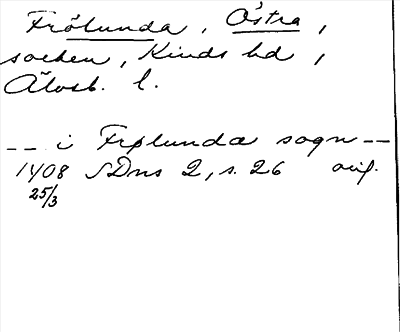 Frölunda, Östra,
socken, Kinds hd,
Älvsb. l.
-- i Frølunda sogn --
1408 SDns 2, s. 26 orig.
25/3